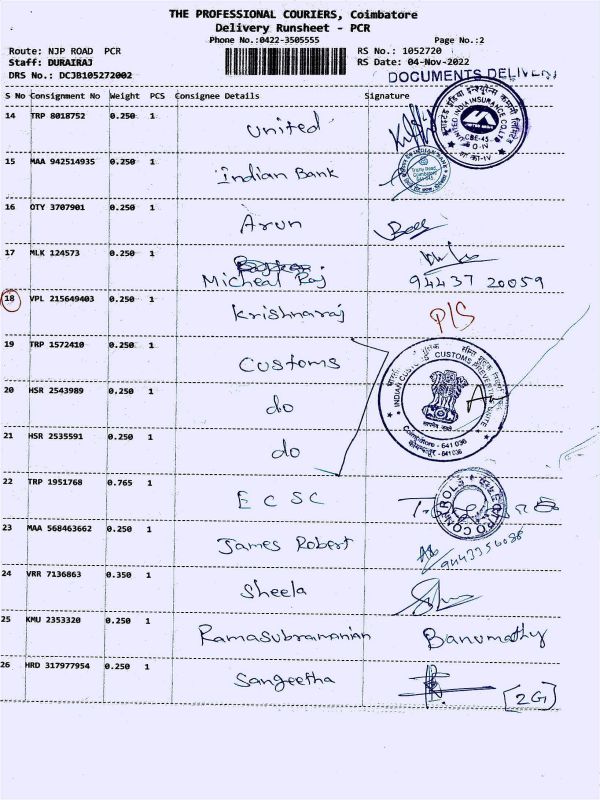 THE PROFESSIONAL COURIERS, Coimbatore
Delivery Runsheet - PCR
Phone No.:0422-3505555 Page No.:2
Route: NJP ROAD PCR RS No.: 1052720
Staff: DURAIRAJ RS Date: 04-Nov-2022
DRS No.: DCJB105272002 DOCUMENTS DELIVERY
S No Consignment No Weight PCS Consignee Details Signature
14 TRP 8018752 0.250 1 United
UNITED INDIA INSURANCE CO LTD
CBE-45
D.O-IV
15 MAA 942514935 0.250 1 Indian Bank
INDIAN BANK
Trichy Road
Coimbatore
16 OTY 3707901 0.250 1 Arun
17 MLK 124573 0.250 1 Micheal Raj 94437 20059
18 VPL 215649403 0.250 1 Krishnaraj P/S
19 TRP 1572410 0.250 1 Customs
INDIAN CUSTOMS CUSTOMS PREVENTIVE UNITE
सत्यमेव जयते
Coimbatore - 641 036
कोयम्बत्तूर - 641 036
20 HSR 2543989 0.250 1 do
21 HSR 2535591 0.250 1 do
22 TRP 1951768 0.765 1 E C S C
CONTROLS
23 MAA 568463662 0.250 1 James Robert
24 VRR 7136863 0.350 1 Sheela
25 KMU 2353320 0.250 1 Ramasubramanian Banumathy
26 HRD 317977954 0.250 1 Sangeetha [2G]